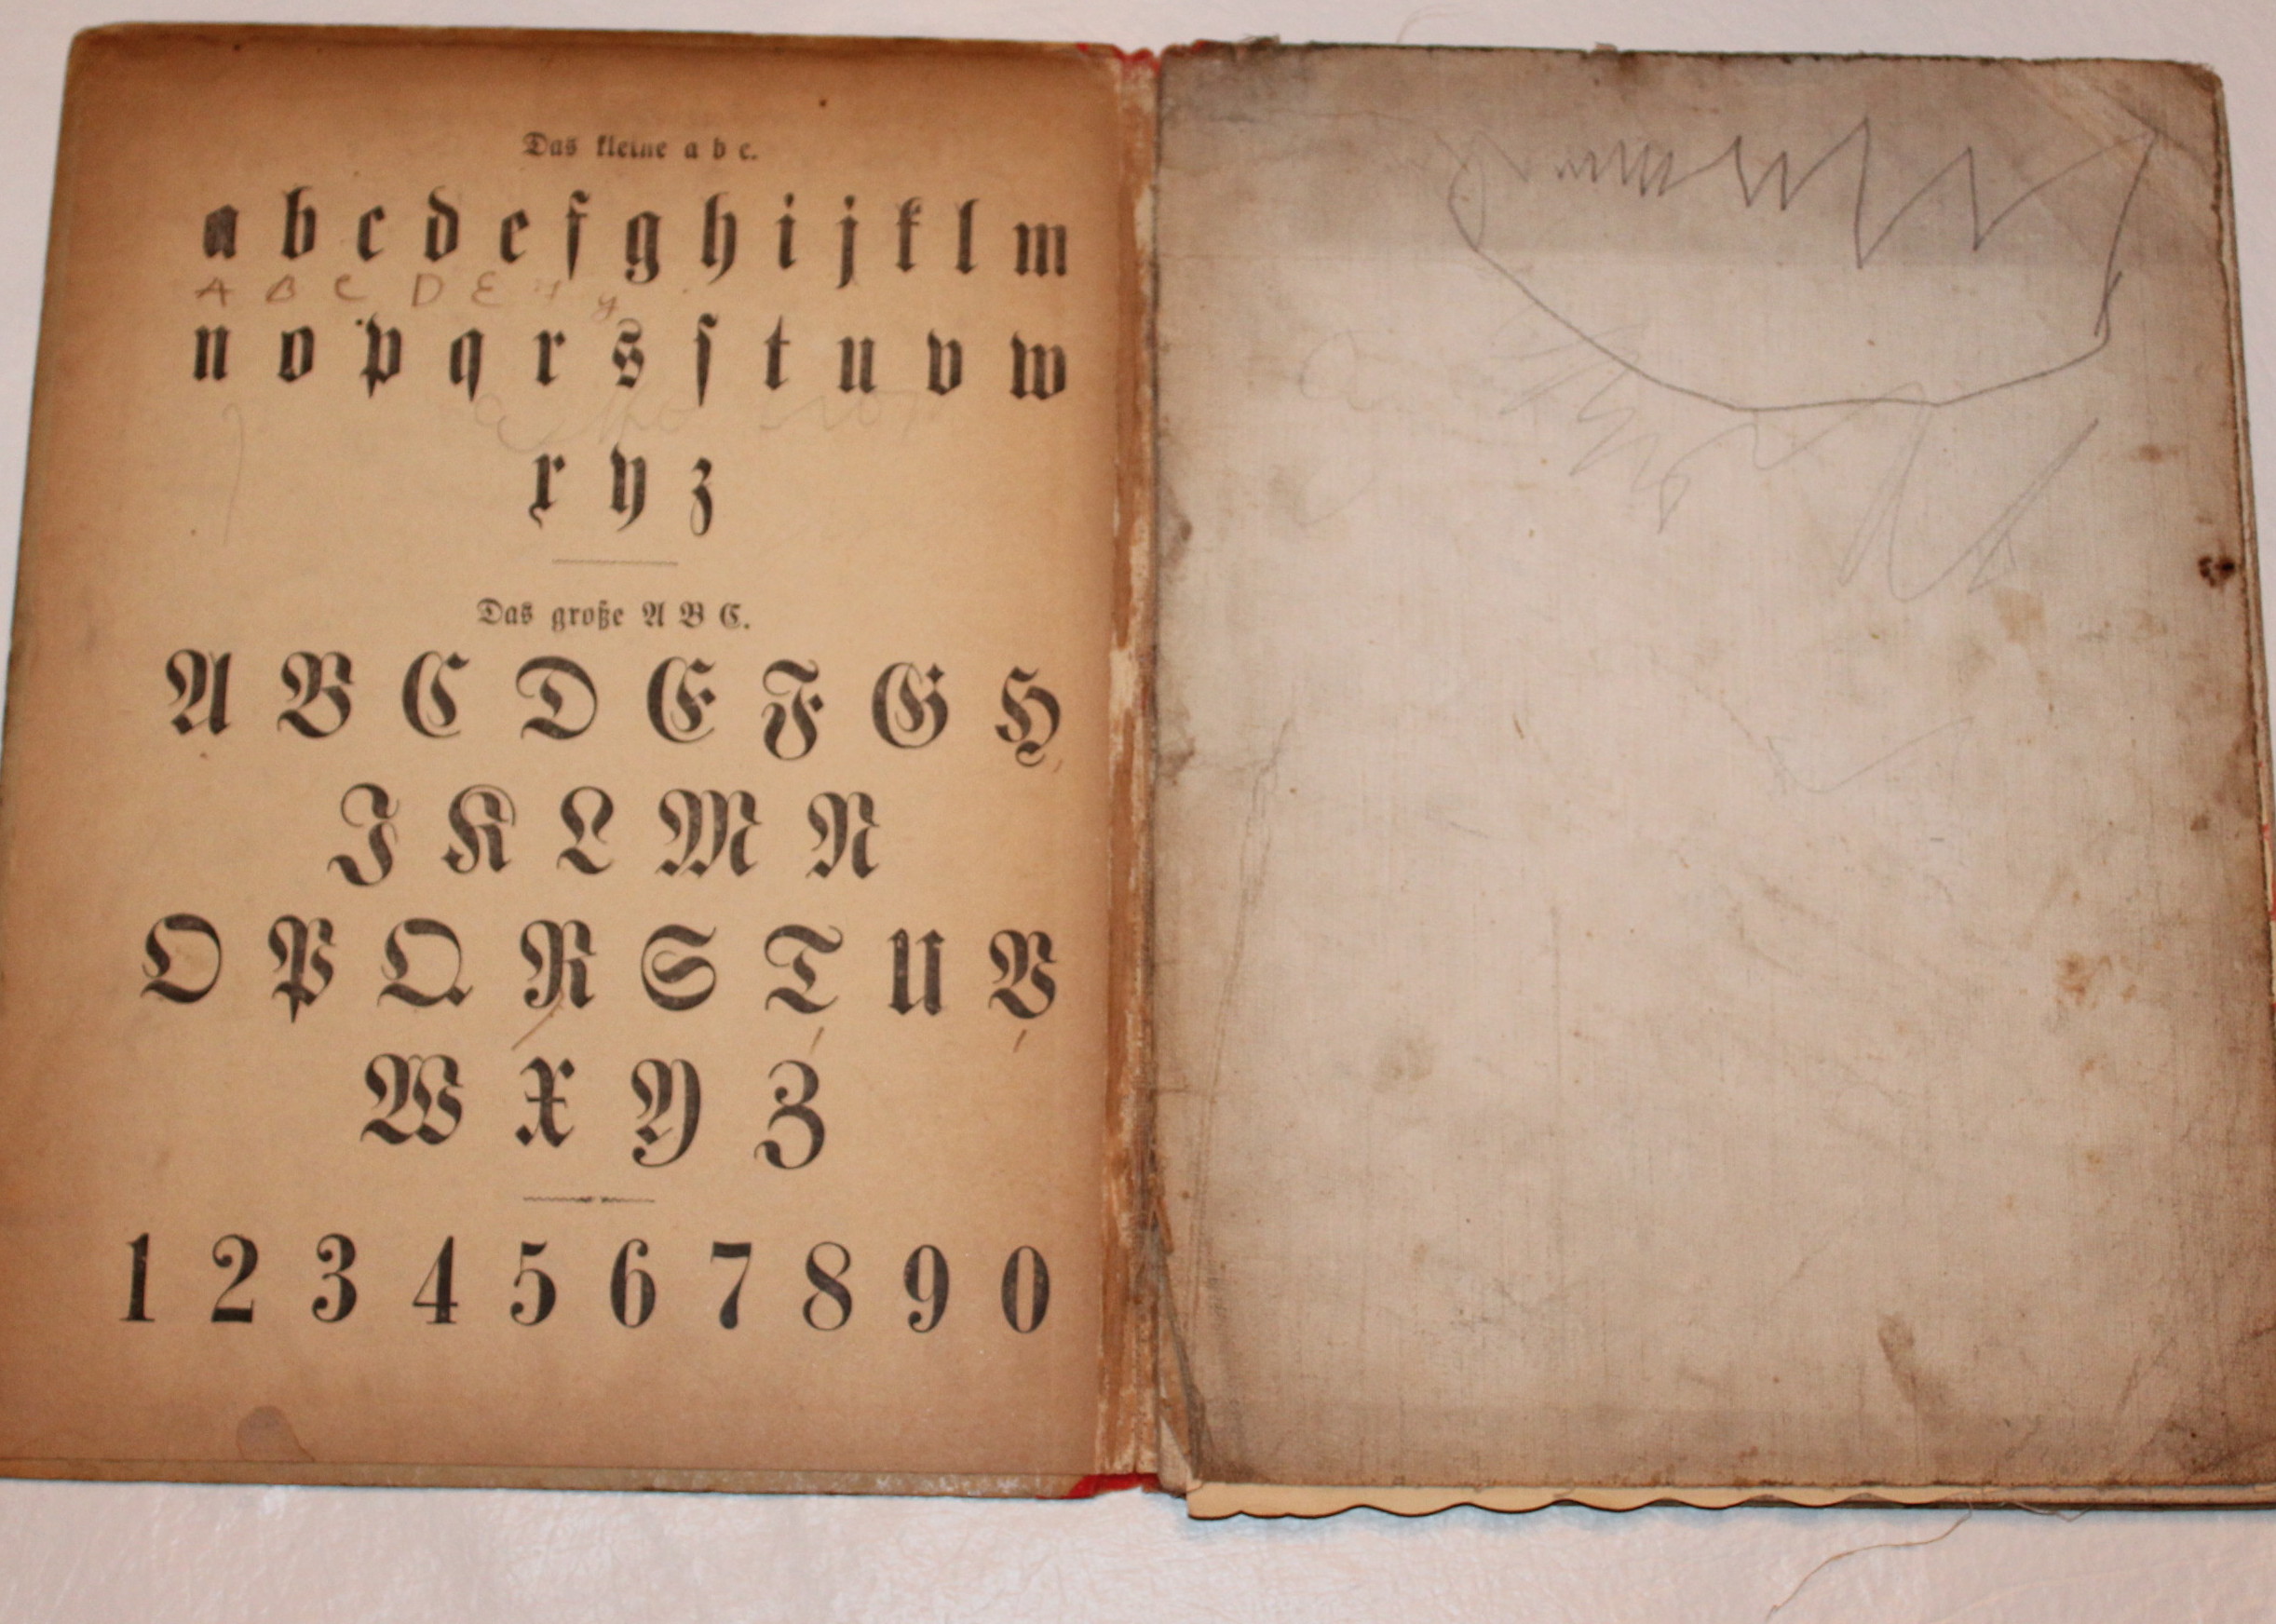 Das kleine a b c.
a b c d e f g h i j k l m
A B C D E
n o p q r s ſ t u v w
x y z
Das große A B C.
A B C D E F G H
J K L M N
O P Q R S T U V
W X Y Z
1 2 3 4 5 6 7 8 9 0